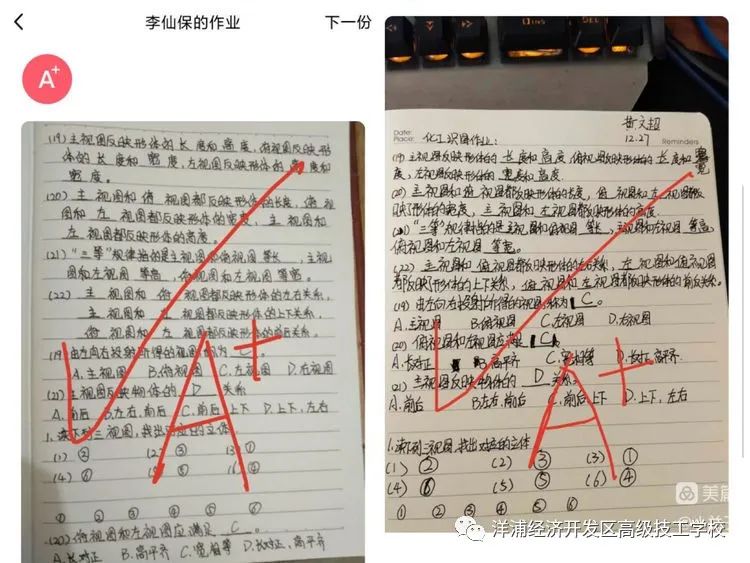 李仙保的作业
下一份
A+
(19)主视图反映形体的长度和高度,俯视图反映形
体的长度和宽度,左视图反映形体的高度和
宽度。
(20) 主视图和俯视图都反映形体的长度,俯视
图和左视图都反映形体的宽度,主视图和
左视图都反映形体的高度。
(21)"三等"规律指的是主视图和俯视图等长,主视
图和左视图等高,俯视图和左视图等宽。
(22) 主视图和俯视图都反映形体的左右关系,
主视图和左视图都反映形体的上下关系,
俯视图和左视图都反映形体的前后关系。
(19)由左向右投射所得的视图称为 C 。
A.主视图 B.俯视图 C.左视图 D.右视图
(21)主视图反映物体的 D 关系
A.前后 B.左右,前后 C.前后,上下 D.上下,左右
1.读下列三视图,找出对应的立体
(1) ② (2) ③ (3) ①
(4) ⑥ (5) ⑤ (6) ④
① ② ③ ④ ⑤ ⑥
(20)俯视图和左视图应满足 C 。
A.长对正 B.高平齐 C.宽相等 D.长对正,高平齐
A+
INS
DEL
Date:
Place:
Reminders
黄文超
12.27
化工识图作业:
(19)主视图反映形体的长度和高度,俯视图反映形体的长度和宽
度,左视图反映形体的宽度和高度。
(20)主视图和俯视图都反映形体的长度,俯视图和左视图都反
映了形体的宽度,主视图和左视图都反映形体的高度。
(21)"三等"规律指的是主视图和俯视图等长,主视图和左视图等高,
俯视图和左视图等宽。
(22)主视图和俯视图都反映形体的左右关系,左视图和主视图
都反映形体的上下关系,俯视图和左视图都反映形体的前后关系。
(19)由左向右投射所得的视图称为 C 。
A.主视图 B.俯视图 C.左视图 D.右视图
(20)俯视图和左视图应满足 C
A.长对正 B.高平齐 C.宽相等 D.长对正,高平齐.
(21)主视图反映物体的 D 关系。
A.前后 B.左右,前后 C.前后,上下 D.上下,左右
1.读下列三视图,找出对应的立体
(1) ② (2) ③ (3) ①
(4) ⑥ (5) ⑤ (6) ④
① ② ③ ④ ⑤ ⑥
A+
美篇
洋浦经济开发区高级技工学校